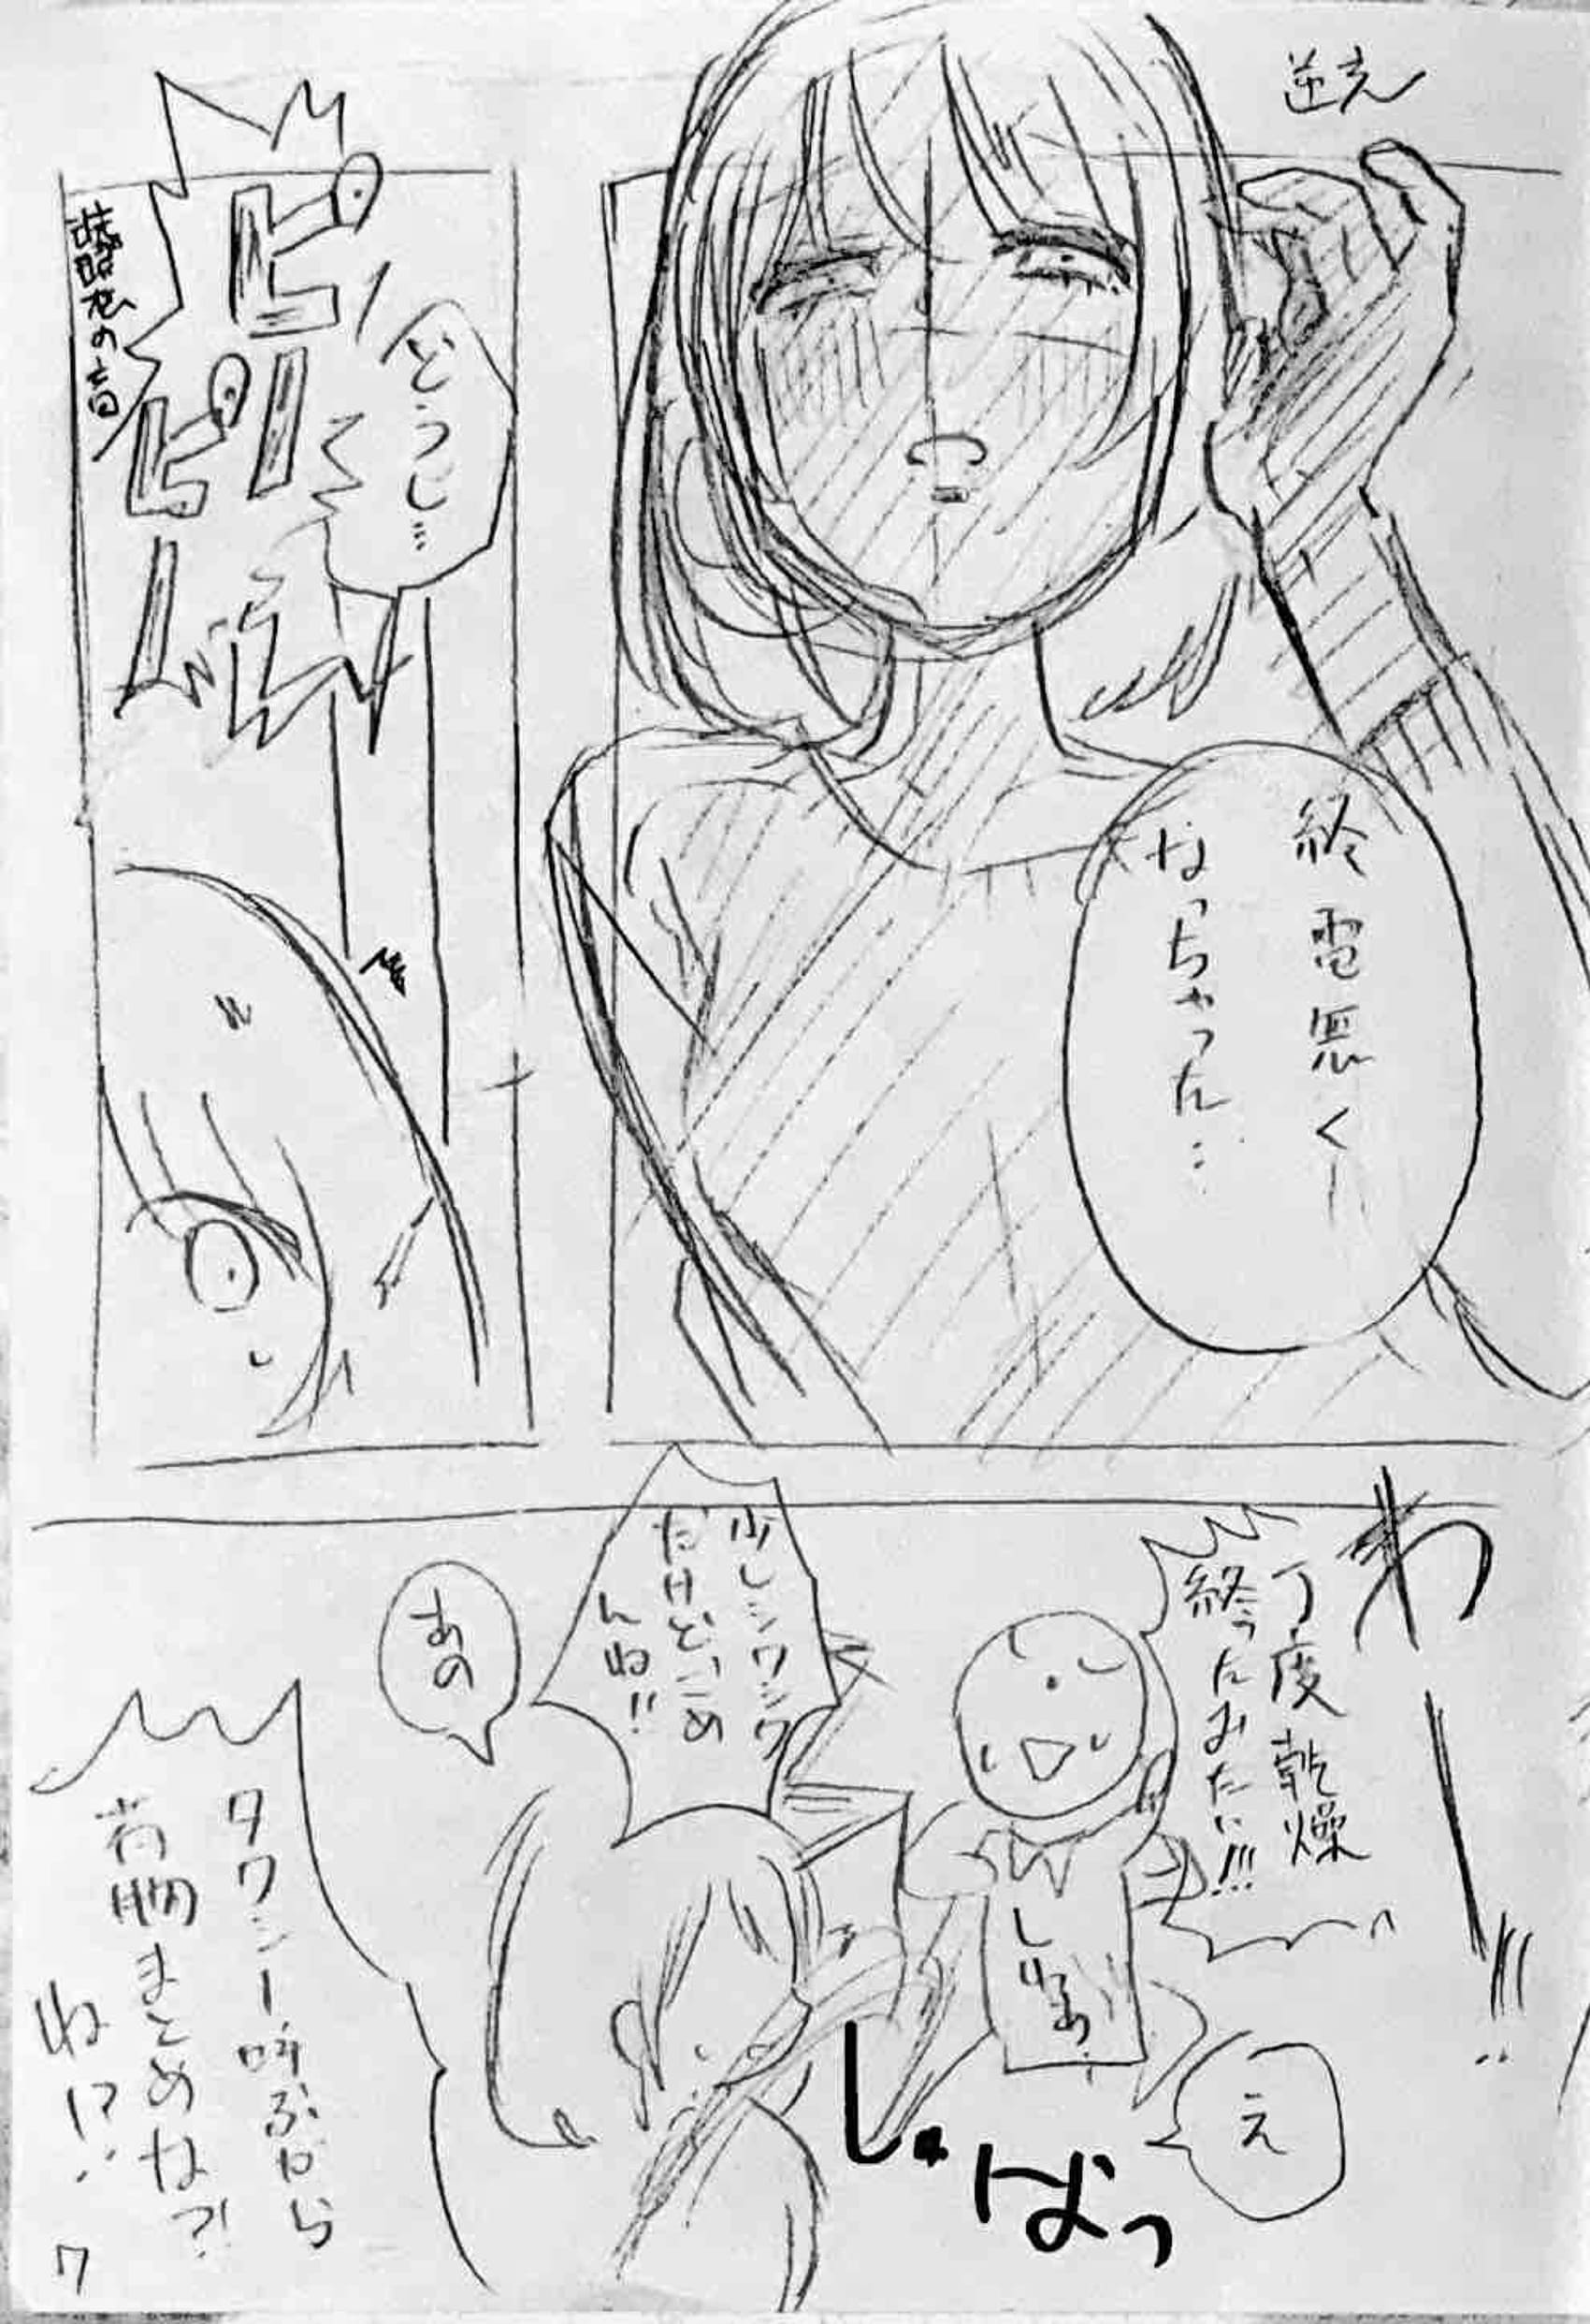 逆光
終電無くー
なっちゃった…
どうし…
ピーッ
ピーッ
乾燥機の音
わーっ!!!
丁度乾燥
終ったみたい!!!
え
少しシワシワ
だけどごめ
んね!!
あの
しゅばっ
タクシー呼ぶから
荷物まとめな?!
ね!?
7